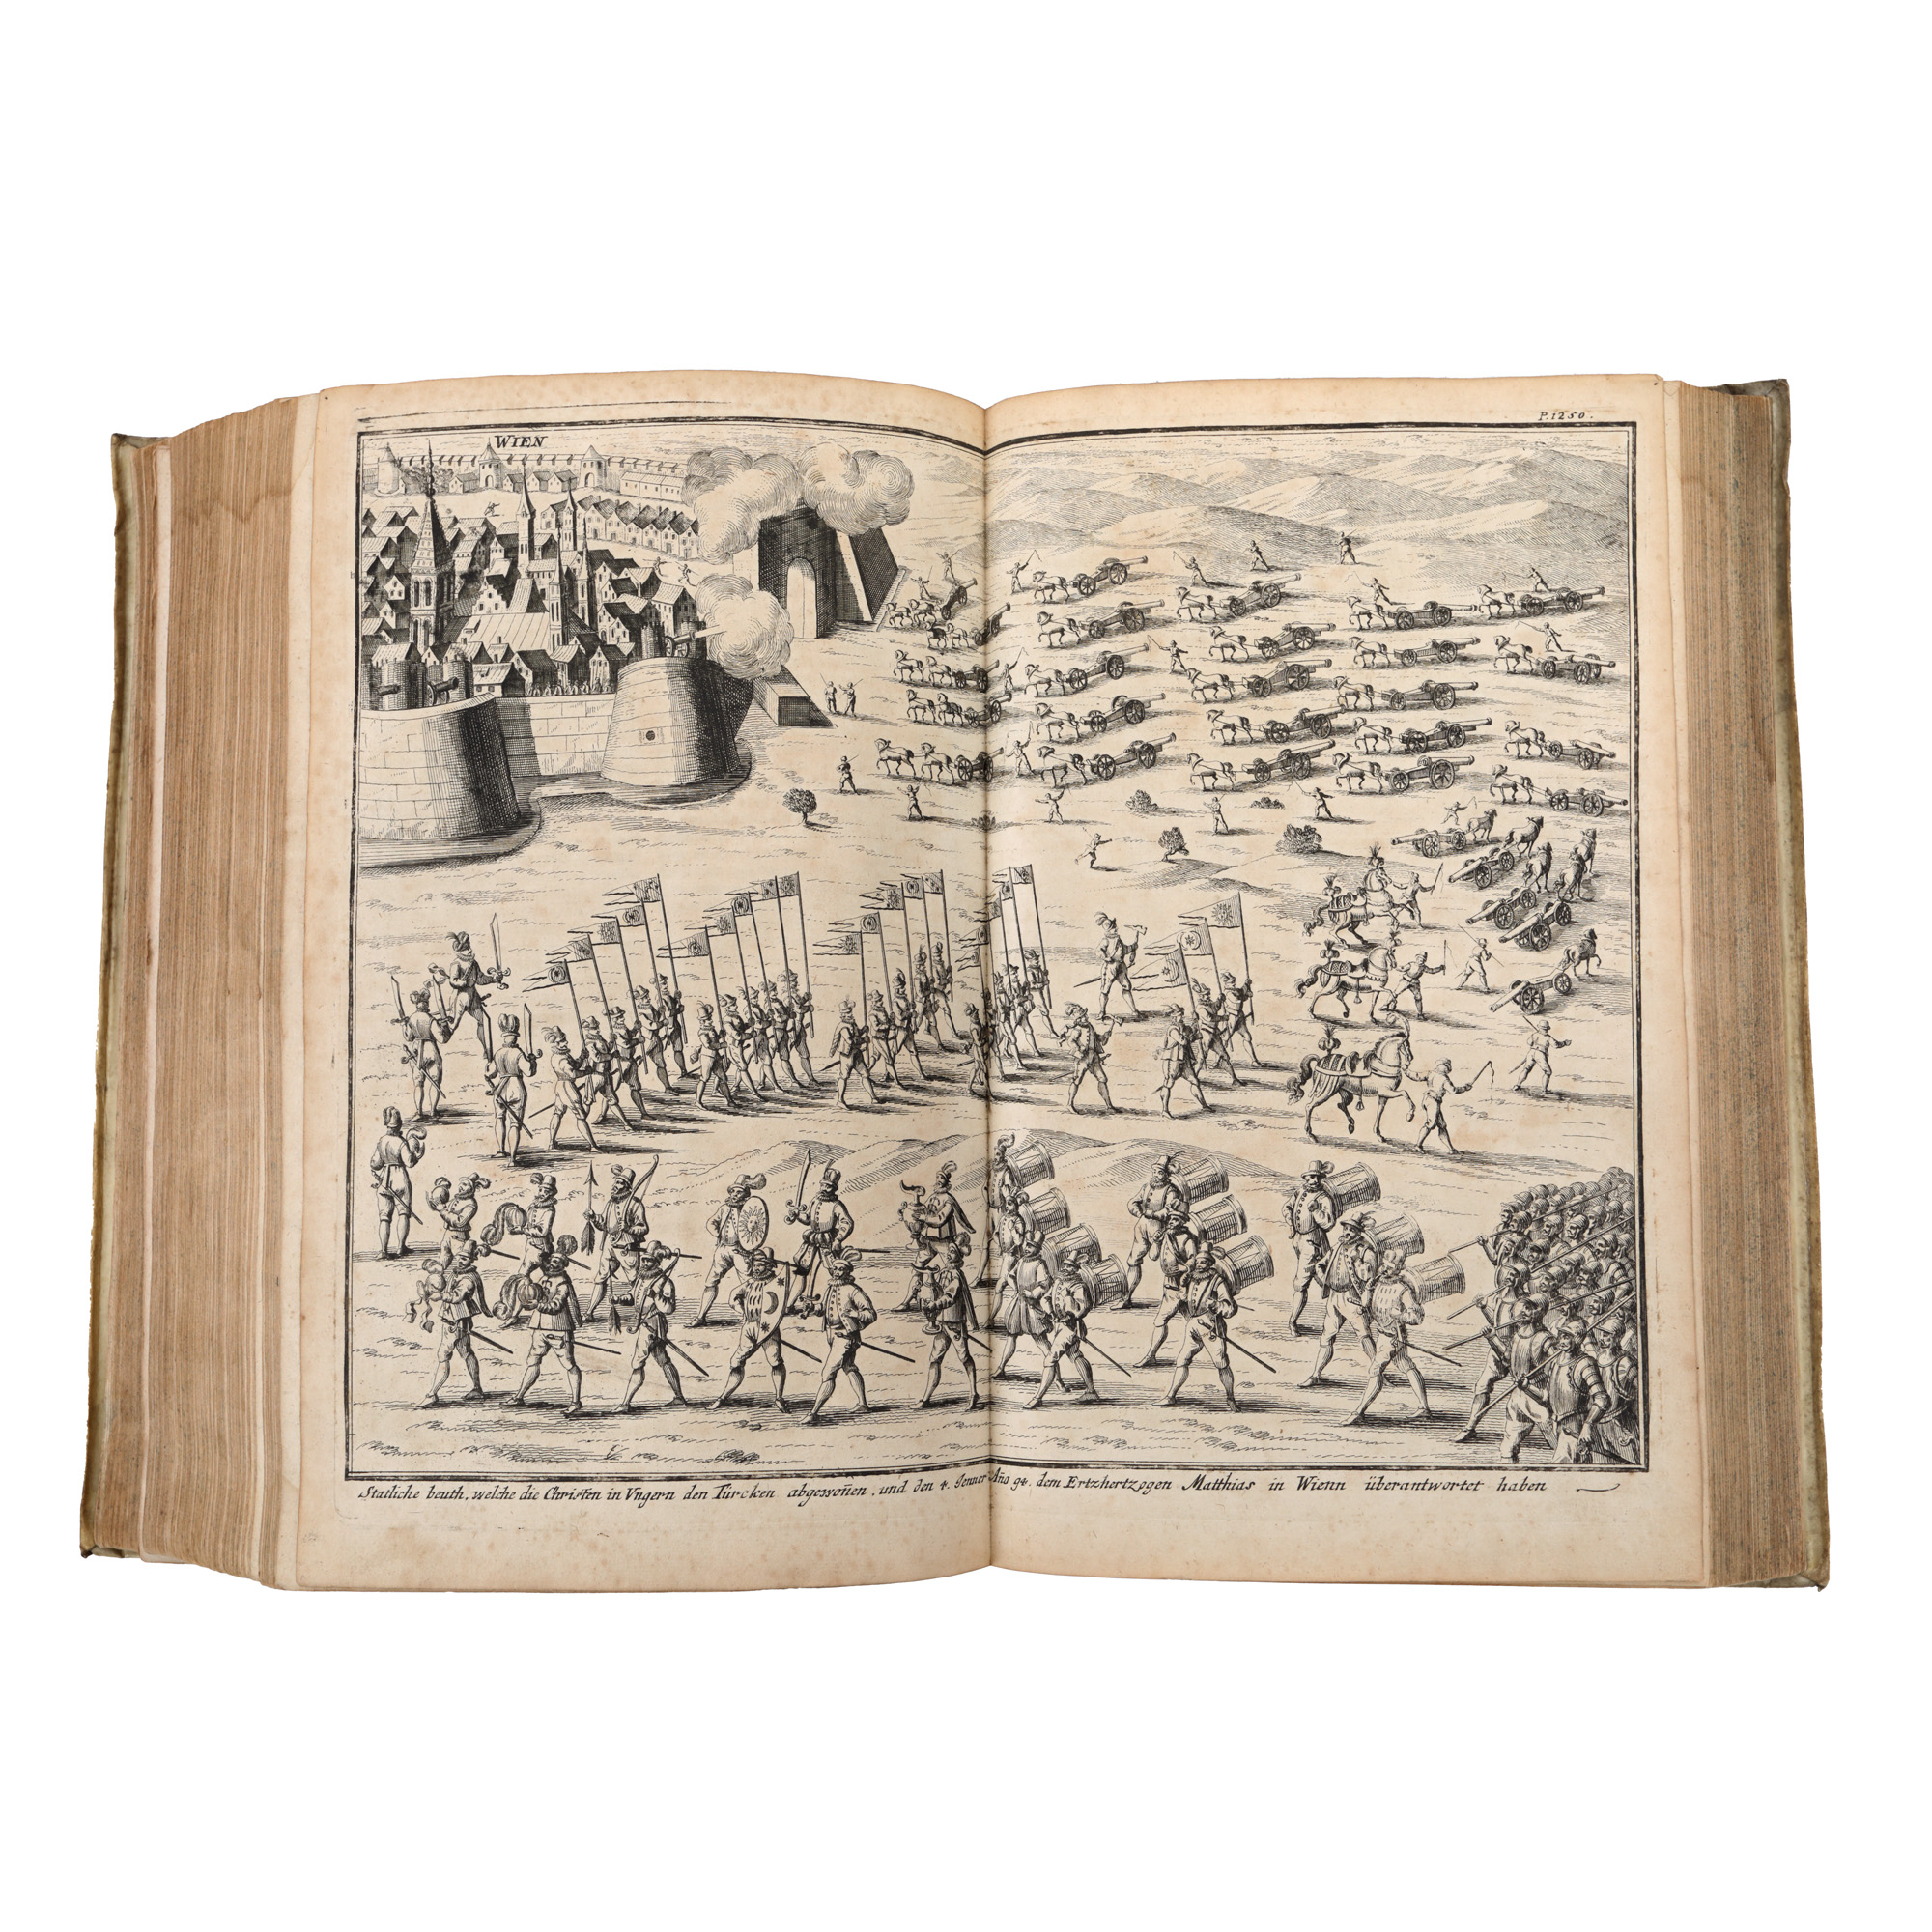 P. 1250.
WIEN
Statliche beuth, welche die Christen in Vngern den Türcken abgewon̄en, und den 4. Jenner Año 94. dem Ertzhertzogen Matthias in Wienn überantwortet haben